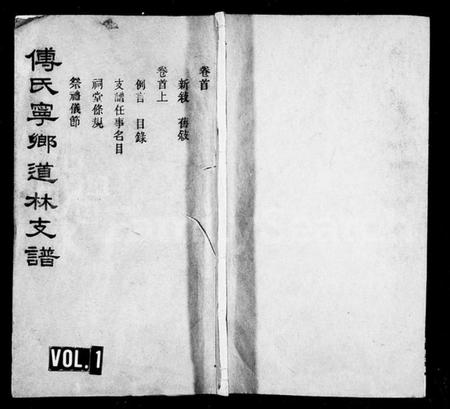 傅氏寧鄉道林支譜
卷首
新敍 舊敍
卷首上
例言 目錄
支譜任事名目
祠堂條規
祭禮儀節
VOL. 1